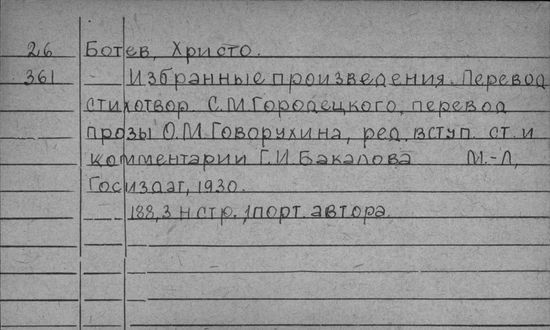 26 Ботев, Христо.
361 Избранные произведения. Перевод
стихотвор. С.М.Городецкого, перевод
прозы О.М.Говорухина, ред. вступ. ст. и
комментарии Г.И.Бакалова М.-Л,
Госиздат, 1930.
188,3 н стр. 1 порт. автора.